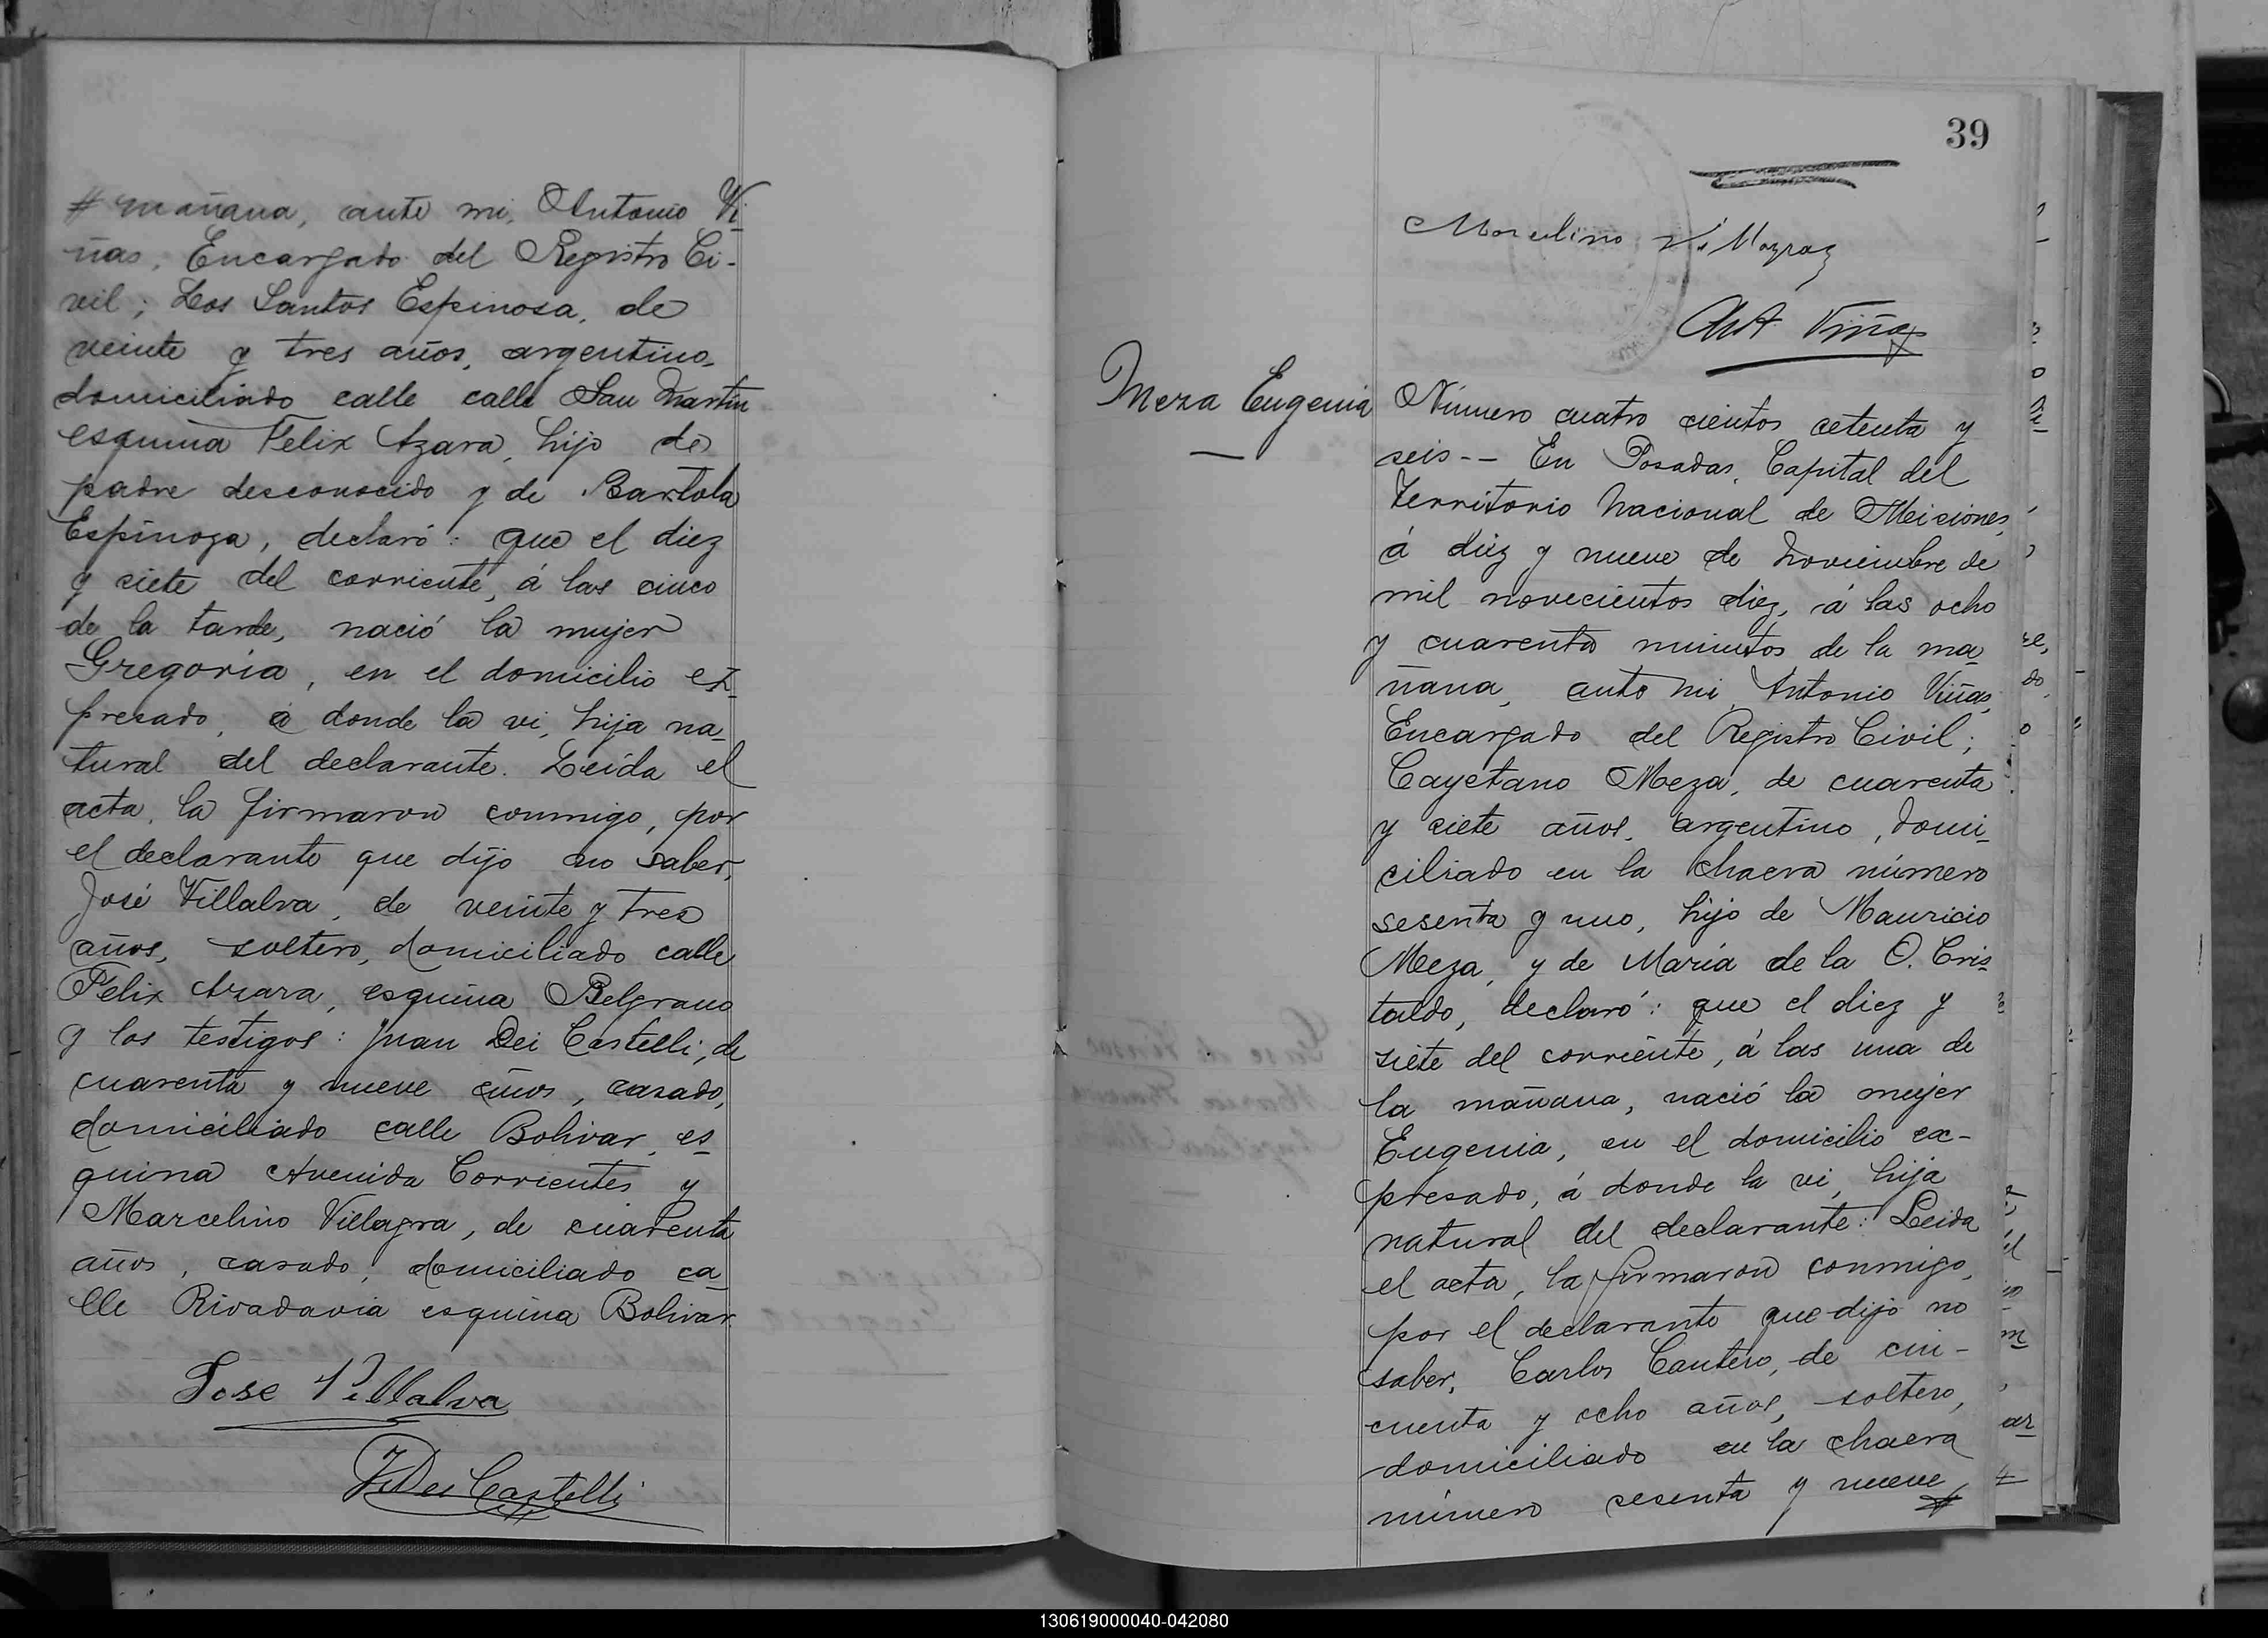 # mañana, ante mi, Antonio Vi
ñas, Encargado del Registro Ci-
vil; Los Santos Espinosa, de
veinte y tres años, argentino,
domiciliado calle calle San Martin
esquina Felix Azara, hijo de
padre desconocido y de Bartola
Espinoza, declaró: que el diez
y siete del corriente, á las cinco
de la tarde, nació la mujer
Gregoria, en el domicilio ex_
presado, á donde la vi, hija na_
tural del declarante. Leida el
acta, la firmaron conmigo, por
el declarante que dijo no saber,
José Villalva, de veinte y tres
años, soltero, domiciliado calle
Felix Azara, esquina Belgrano
y los testigos: Juan Dei Castelli, de
cuarenta y nueve años, casado,
domiciliado calle Bolivar, es_
quina Avenida Corrientes y
Marcelino Villagra, de cuarenta
años, casado, domiciliado ca_
lle Rivadavia esquina Bolivar.
Jose Villalva
J Dei Castelli
39
Marcelino Villagraz
Ant Viñas
Meza Eugenia
Número cuatro cientos setenta y
seis-- En Posadas, Capital del
Territorio Nacional de Misiones,
á diez y nueve de Noviembre de
mil novecientos diez, á las ocho
y cuarenta minutos de la ma_
ñana, ante mi, Antonio Viñas,
Encargado del Registro Civil;
Cayetano Meza, de cuarenta
y siete años, argentino, domi_
ciliado en la chacra número
sesenta y uno, hijo de Mauricio
Meza, y de María de la O. Cris_
taldo, declaró: que el diez y
siete del corriente, á las una de
la mañana, nació la mujer
Eugenia, en el domicilio ex-
presado, á donde la vi, hija
natural del declarante: Leida
el acta, la firmaron conmigo,
por el declarante que dijo no
saber, Carlos Cantero, de cin-
cuenta y ocho años, soltero,
domiciliado en la chacra
número sesenta y nueve #
130619000040-042080